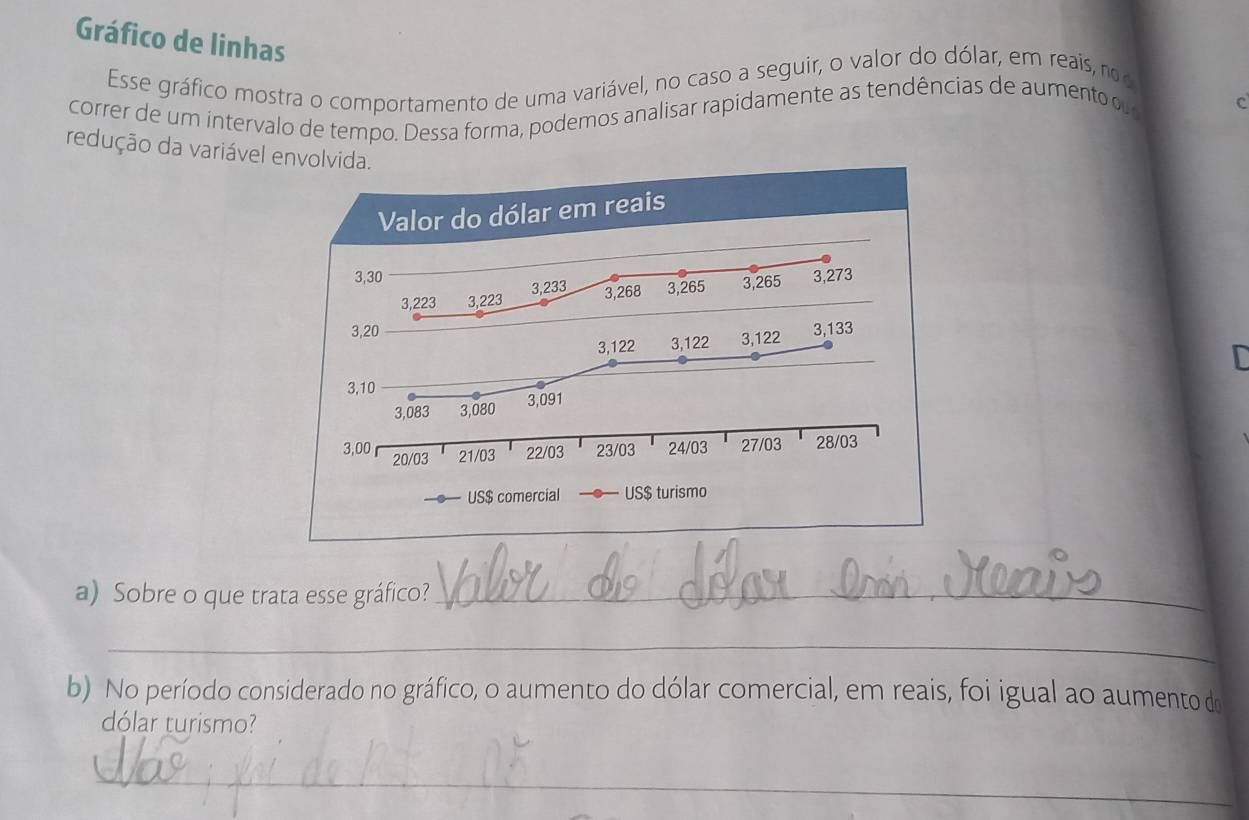 Gráfico de linhas
Esse gráfico mostra o comportamento de uma variável, no caso a seguir, o valor do dólar, em reais, no
correr de um intervalo de tempo. Dessa forma, podemos analisar rapidamente as tendências de aumento ou
redução da variável envolvida.
Valor do dólar em reais
3,30
3,223 3,223 3,233 3,268 3,265 3,265 3,273
3,20
3,122 3,122 3,122 3,133
3,10
3,083 3,080 3,091
3,00
20/03 21/03 22/03 23/03 24/03 27/03 28/03
US$ comercial US$ turismo
a) Sobre o que trata esse gráfico? Valor do dólar em reais
b) No período considerado no gráfico, o aumento do dólar comercial, em reais, foi igual ao aumento do
dólar turismo?
Não, foi de